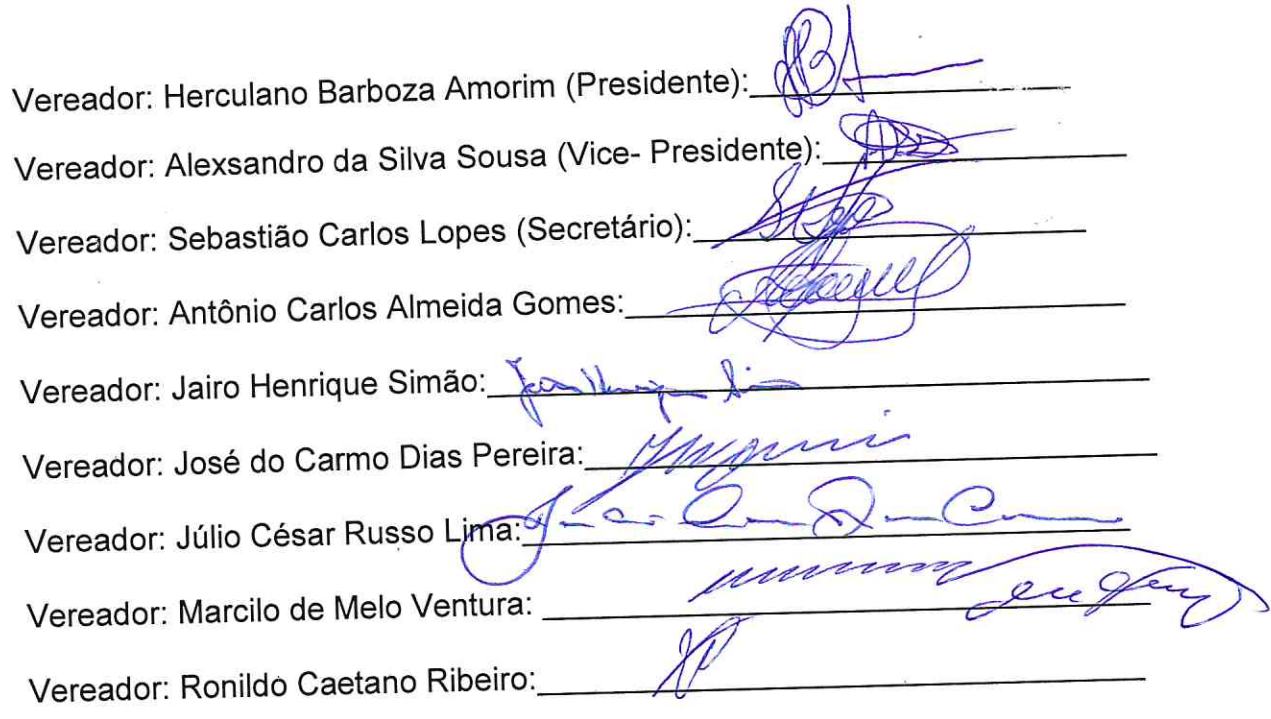 Vereador: Herculano Barboza Amorim (Presidente):
Vereador: Alexsandro da Silva Sousa (Vice- Presidente):
Vereador: Sebastião Carlos Lopes (Secretário):
Vereador: Antônio Carlos Almeida Gomes:
Vereador: Jairo Henrique Simão:
Vereador: José do Carmo Dias Pereira:
Vereador: Júlio César Russo Lima:
Vereador: Marcilo de Melo Ventura:
Vereador: Ronildo Caetano Ribeiro: